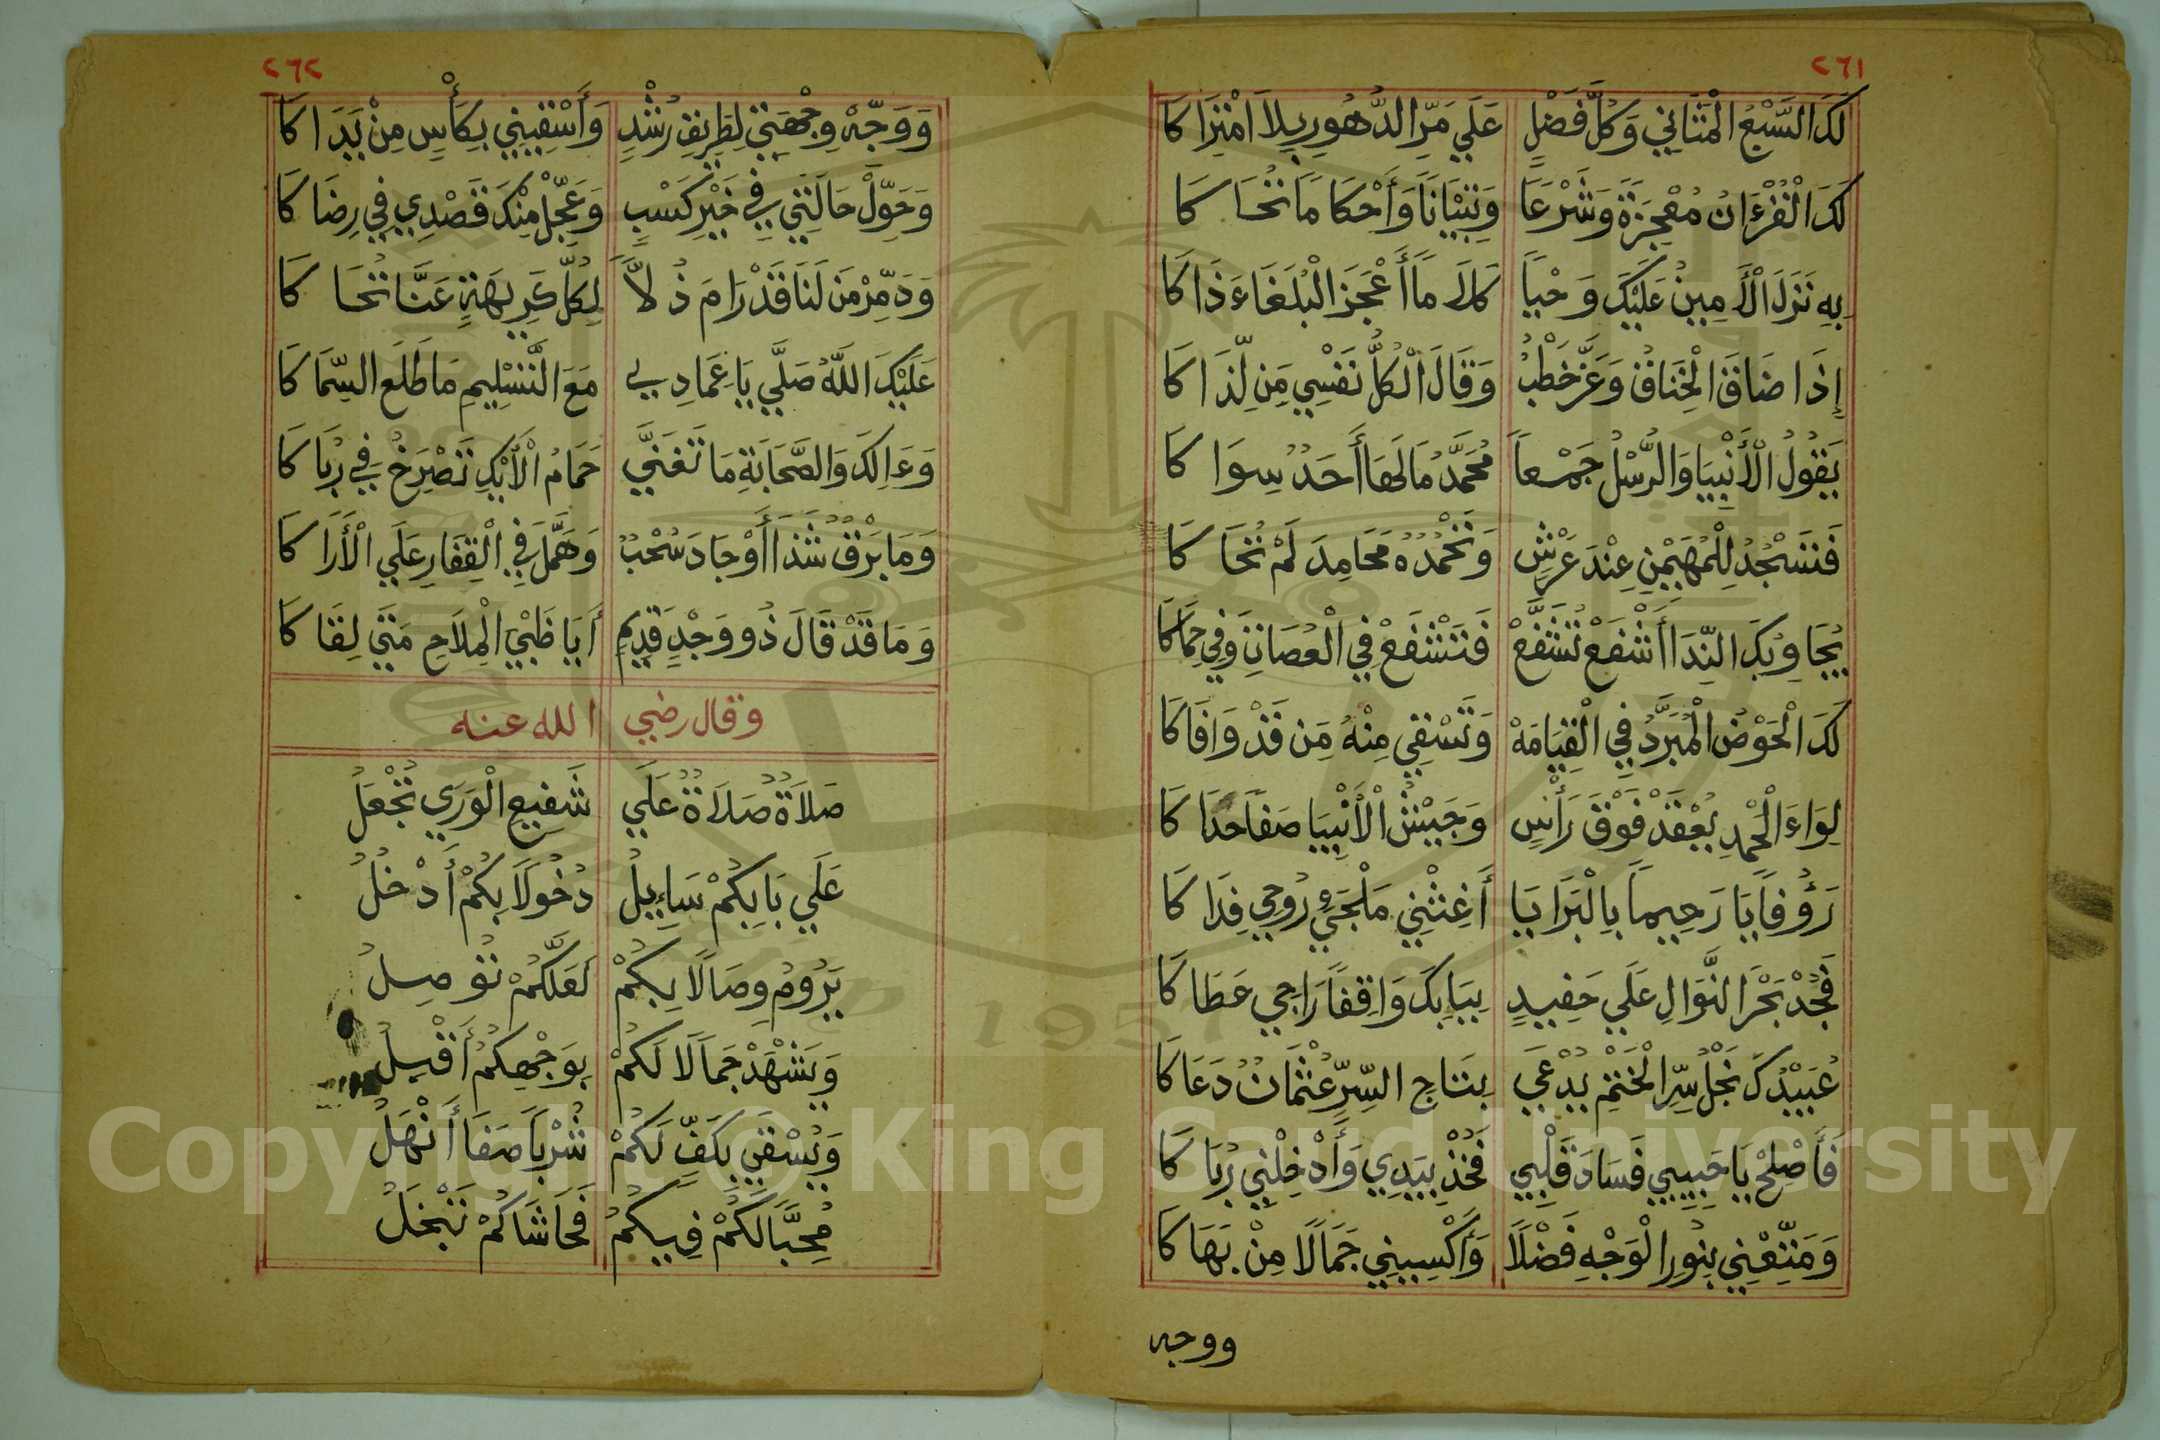 ٢٦١
لَكَ السَّبْعُ الْمَثَانِي وَكُلُّ فَضْلٍ عَلَي مَرِّ الدُّهُورِ بِلاَ امْتِرَاكَا
لَكَ الْقُرْءَانُ مُعْجِزَةً وَشَرْعَا وَتِبْيَاناً وَأَحْكَامَا نُحَاكَا
بِهِ نَزَلَ الْأَمِينُ عَلَيْكَ وَحْياً كَلَامَا أَعْجَزَ الْبُلَغَاءَ ذَاكَا
إِذَا ضَاقَ الْخِنَاقُ وَعَزَّ خَطْبُ وَقَالَ الْكُلُّ نَفْسِي مَن لِّذَاكَا
يَقُولُ الْأَنْبِيَا وَالرُّسْلُ جَمْعاً مُحَمَّدُ مَالَهَا أَحَدُ سِوَاكَا
فَتَسْجُدُ لِلْمُهَيْمِنِ عِنْدَ عَرْشٍ وَتَحْمُدُهُ مَحَامِدَ لَمْ تُحَاكَا
يُجَاوِبُكَ النِّدَا أَشْفَعْ تُشَفَّعْ فَتَشْفَعْ فِي الْعُصَاتِ وَفِي حِمَاكَا
لَكَ الْحَوْضُ الْمُبَرَّدُ فِي الْقِيَامَةْ وَتَسْقِي مِنْهُ مَن قَدْ وَافَاكَا
لِوَاءَ الْحَمْدِ يُعْقَدْ فَوْقَ رَأْسٍ وَجَيْشُ الْأَنْبِيَا صَفَا حَدَاكَا
رَؤُفاً يَا رَحِيماً بِالْبَرَايَا أَغِثْنِي مَلْجَئِي رُوحِي فِدَاكَا
فَجُدْ بَحْرَ النَّوَالِ عَلَي حَفِيدٍ بِبَابِكَ وَاقِفاً رَاجِي عَطَاكَا
عُبَيْدُكَ نَجْلُ سِرِّ الْخَتْمِ يُدْعَي بِتَاجِ السِّرِّ عُثْمَانُ دَعَاكَا
فَأَصْلِحْ يَا حَبِيبِي فَسَادَ قَلْبِي فَخُذْ بِيَدِي وَأَدْخِلْنِي رُبَاكَا
وَمَتِّعْنِي بِنُورِ الْوَجْهِ فَضْلًا وَأَكْسِبِنِي جَمَالًا مِنْ بَهَاكَا
ووجه
٢٦٢
وَوَجِّهْ وِجْهَتِي لِطَرِيفِ رُشْدٍ وَأَسْقِينِي بِكَأْسٍ مِنْ يَدَاكَا
وَحَوِّلْ حَالَتِي فِي خَيْرِ كَسْبٍ وَعَجِّلْ مِنْكَ قَصْدِي فِي رِضَاكَا
وَدَمِّرْ مَن لَنَا قَدْ رَامَ ذُلاًّ لِكُلِّ كَرِيهَةٍ عَنَّا نُحَاكَا
عَلَيْكَ اللَّهُ صَلَّي يَا عِمَادِي مَعَ التَّسْلِيمِ مَا طَلَعَ السِّمَاكَا
وَءَالِكَ وَالصَّحَابَةِ مَا تَغَنَّي حَمَامُ الْأَيْكِ تَصْرَخُ فِي رُبَاكَا
وَمَا بَرْقٌ شَذَا أَوْ جَادَ سُحْبٌ وَهَمَّلَ فِي الْقِفَارِ عَلَي الْأَرَاكَا
وَمَا قَدْ قَالَ ذُو وَجْدٍ قَدِيمِ أَيَا ظَبْيَ الْمِلَاحِ مَتَي لِقَاكَا
وقال رضي الله عنه
صَلاَةٌ صَلاَةٌ عَلَي شَفِيعِ الْوَرَي تُجْعَلُ
عَلَي بَابِكُمْ سَاءِيلُ دُخُولًا بِكُمْ أَدْخُلُ
يَرُومُ وِصَالًا بِكُمْ لَعَلَّكُمْ تُوصِلُ
وَيَشْهَدْ جَمَالًا لَكُمْ بِوَجْهِكُمْ أَقْبِلُ
وَيُسْقَي بِكَفٍّ لَكُمْ شُرْباً صَفَا أَنْهَلُ
مُحِبًّا لَكُمْ فِيكُمُ فَحَاشَاكُمْ تَبْخَلُ
Copyright © King Saud University
1957